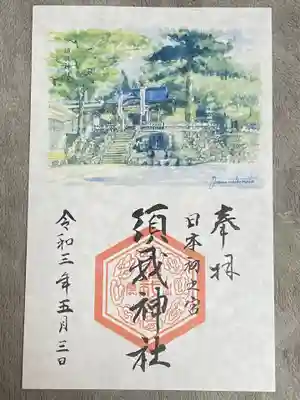 奉拝
日本初之宮
須我神社
令和三年五月三日